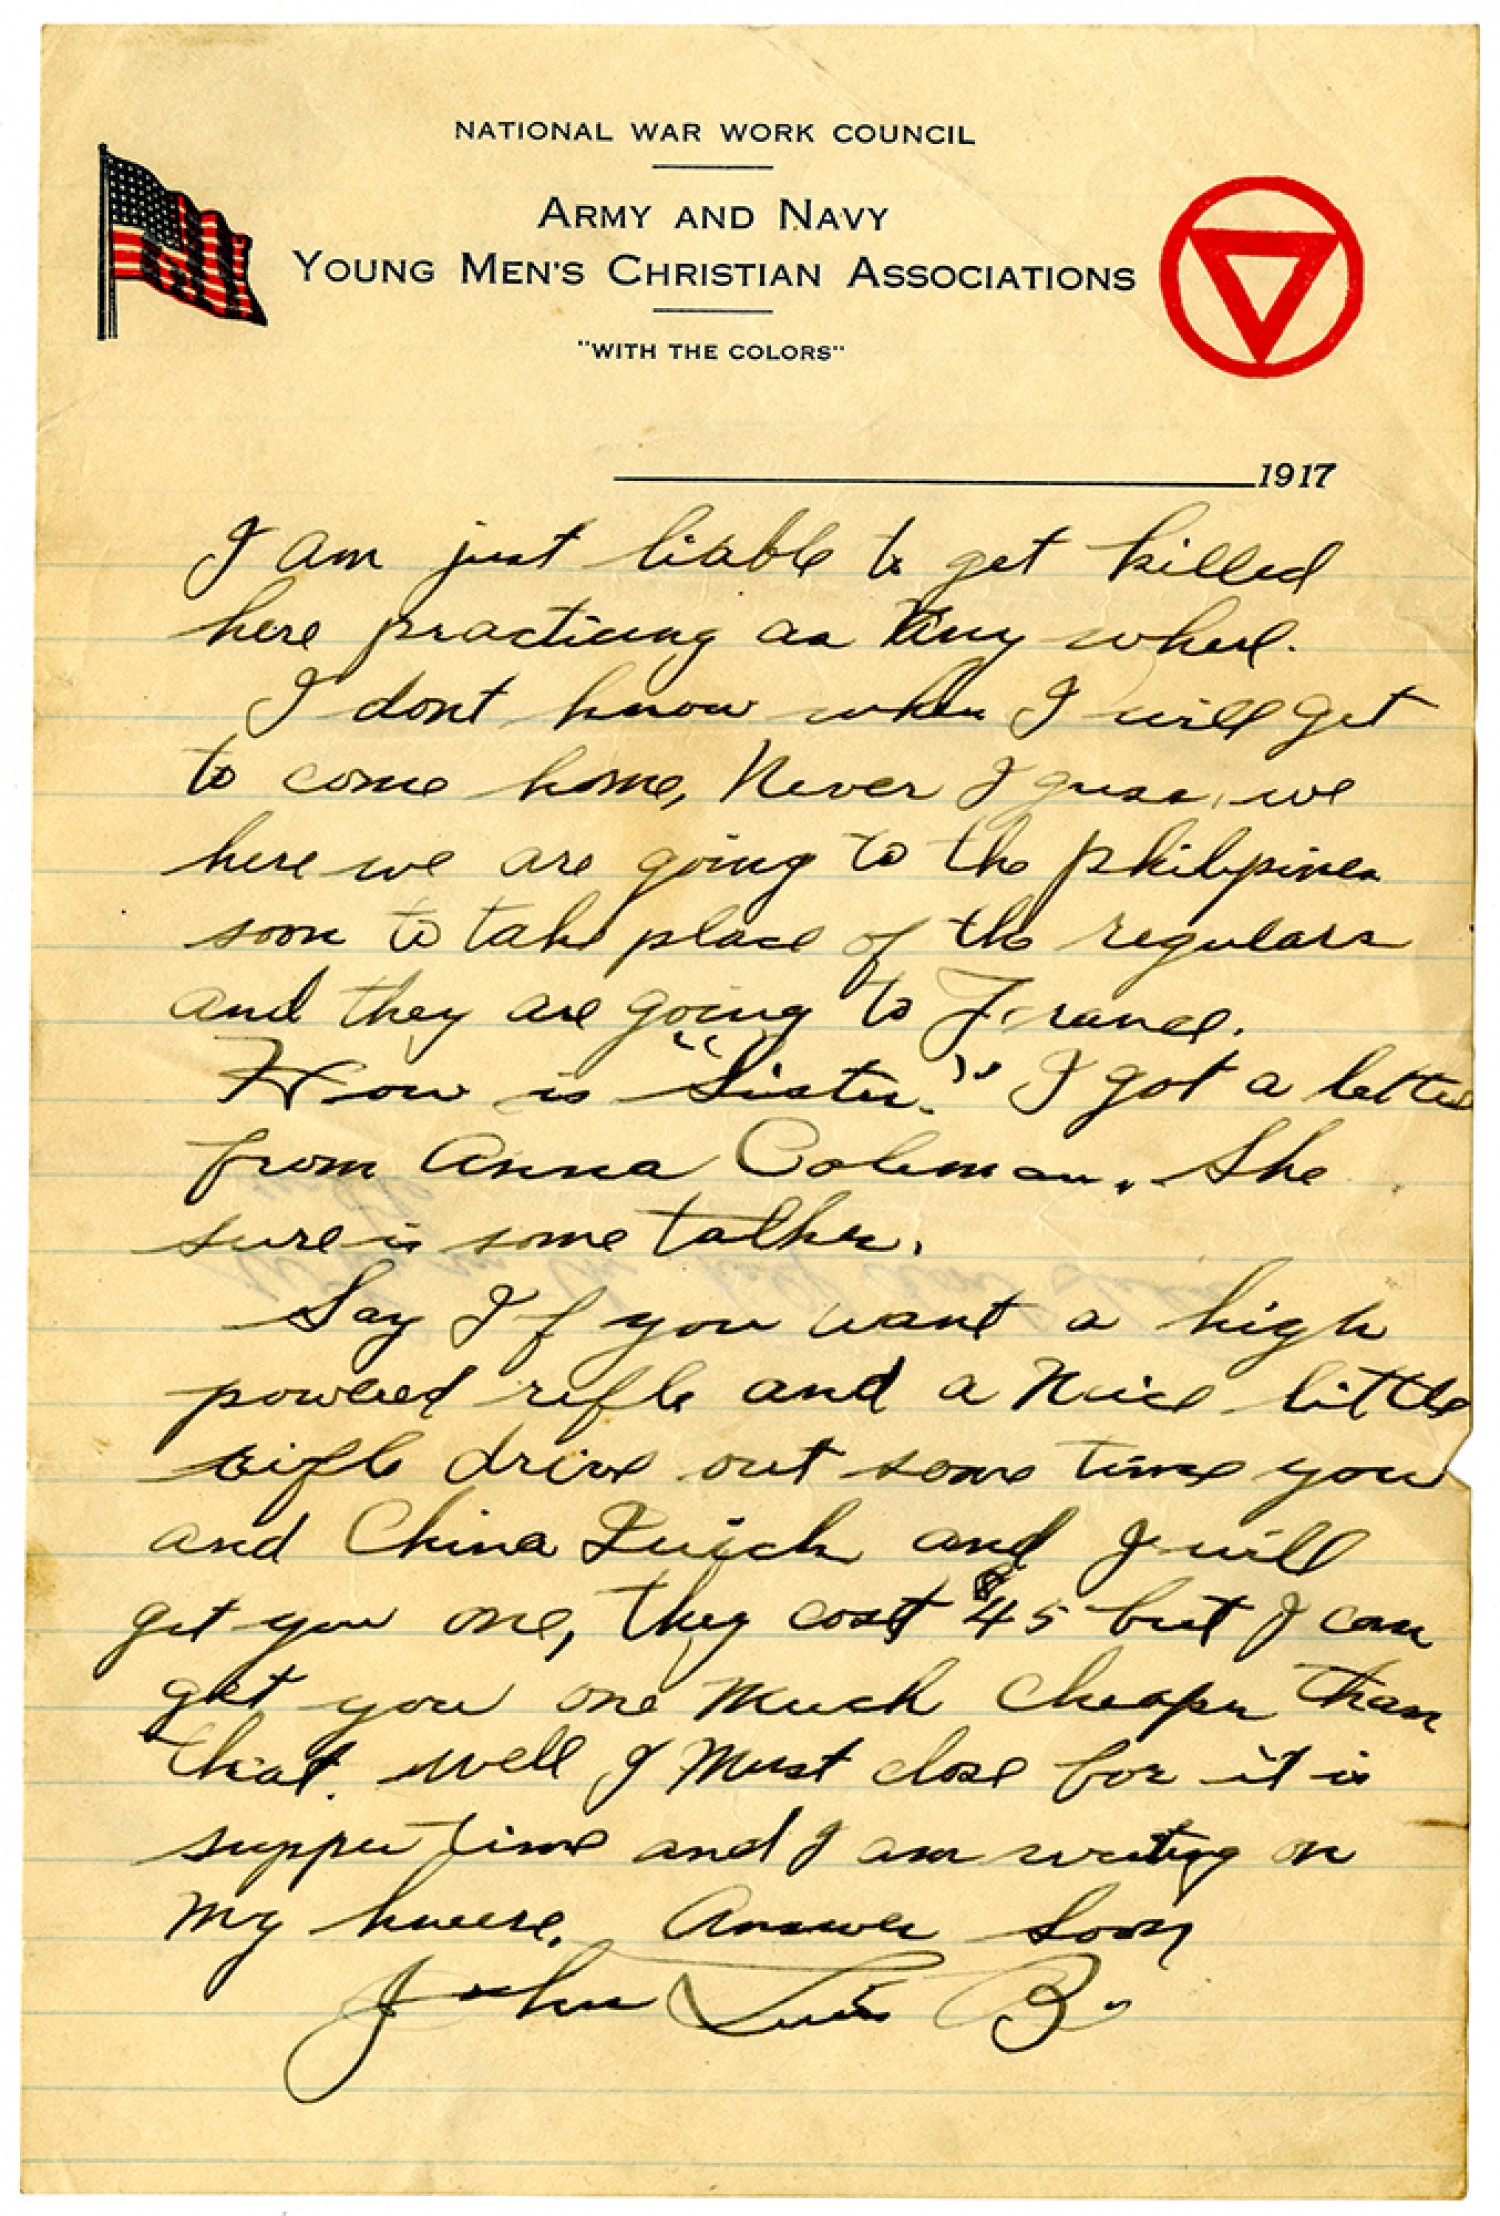 NATIONAL WAR WORK COUNCIL
ARMY AND NAVY
YOUNG MEN'S CHRISTIAN ASSOCIATIONS
"WITH THE COLORS"
1917
I am just liable to get killed
here practicing as any where.
I dont know when I will get
to come home, Never I guess, we
here we are going to the Philippines
soon to take place of the regulars
and they are going to France.
How is "Sister." I got a letter
from Anna Coleman. She
sure is some talker.
Say If you want a high
powered rifle and a Nice little
rifle drive out some time you
and China and I will
get you one, they cost $45 but I can
get you one Much Cheaper Than
that. well I Must close for it is
supper time and I am writing on
my kneere. Answer Soon
John B.